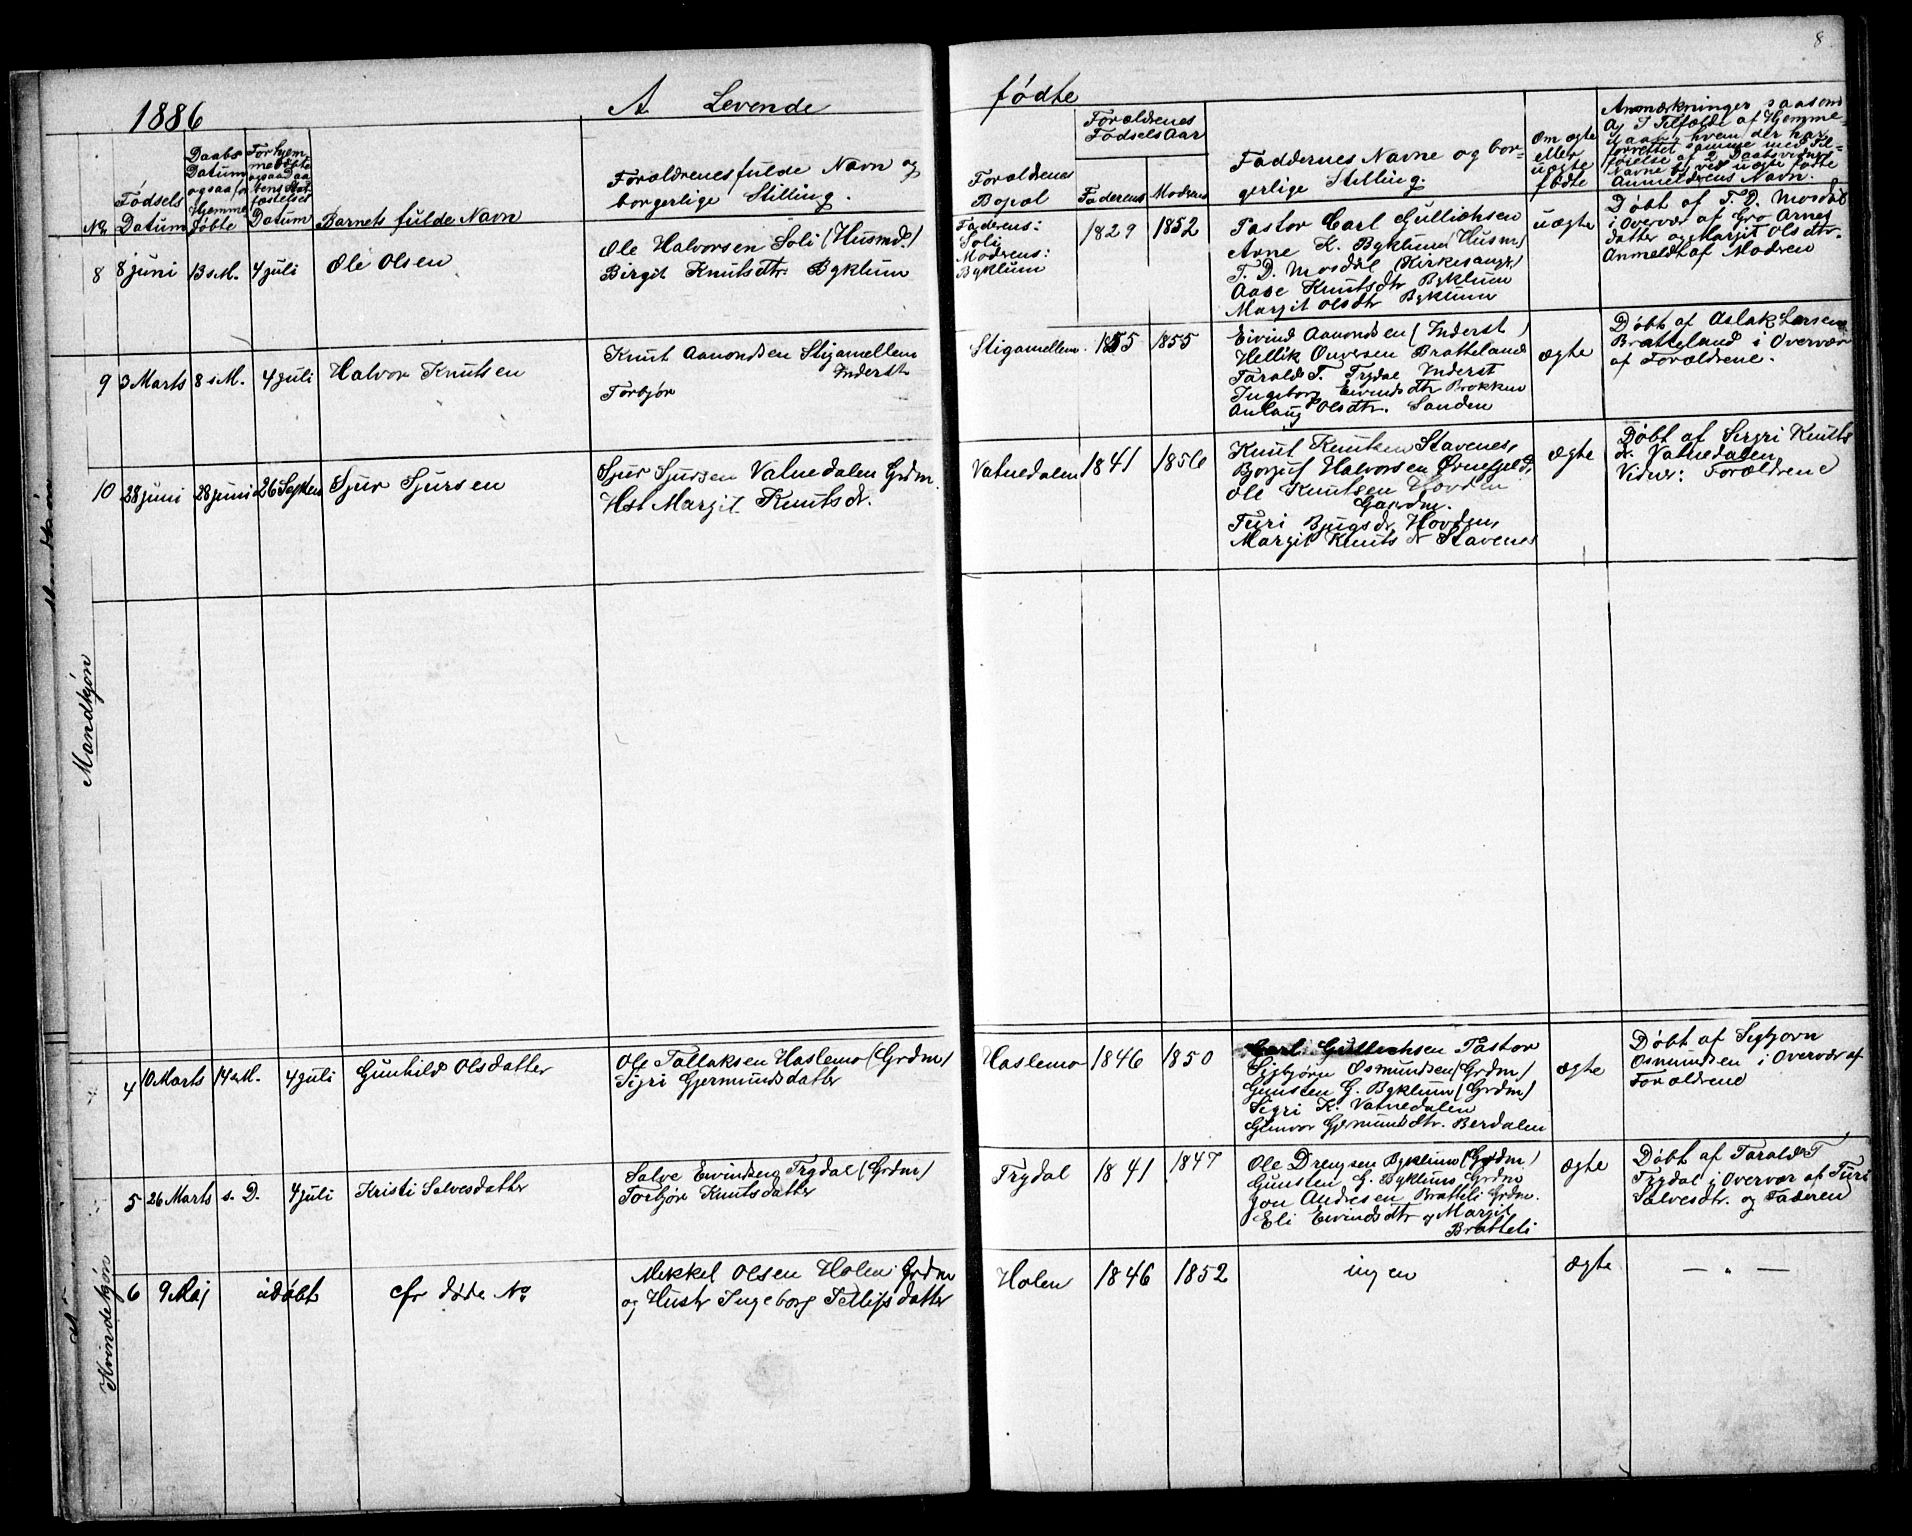 8
1886
A Levende
fødte
No
Fødsels
Datum
Daabs
Datum
ogsaa for
Hjemme
døbte
For hjem
me døbte
ogsaa
Datum
Barnets fulde Navn
Forældrenes fulde Navn og
borgerlige Stilling.
Forældrenes
Bopæl
Forældrenes
Fødsels Aar
Faderens
Moderens
Faddernes Navne og bor-
gerlige Stilling.
Om ægte
eller
uægte
fødte
Anmærkninger saasom
Aj I Tilfælde af Hjemme-
daab, hvem der har
forrettet samme med Til-
føielse af 2 Daabsvidners
Navne b) ved uægte fødte
Anmelderens Navn.
Mandkjøn
8
8 juni
13 s. M.
4 juli
Ole Olsen
Ole Halvorsen Soli (Husmd.)
Birgit Knutsdtr Byklum
Faderens:
Soli
Moderens:
Byklum
1829
1852
Pastor Carl Gullichsen
Arne K. Byklum (Husm)
T. D. Mosdøl (Kirkesangr)
Aase Knutsdtr Byklum
Margit Olsdtr Byklum
uægte
Døbt af T. D. Mosdøl
i Overvær af Gro Arnes
datter og Margit Olsdtr.
Anmeldt af Moderen
9
3 Marts
8 s. M.
4 juli
Halvor Knutsen
Knut Aanondsen Stigamellem
Inderst
Torbjør
Stigamellem
1855
1855
Eivind Aanondsen (Inderst)
Hellik Onversen Bratteland
Tarald T. Trydal Inderst
Ingeborg Eivindsdtr Brokken
Anlaug Olsdtr. Sanden
ægte
Døbt af Aslak Larsen
Bratteland i Overvær
af Forældrene.
10
28 juni
28 juni
26 Septem
Sjur Sjursen
Sjur Sjursen Vatnedalen Grdm.
Hst Margit Knutsdr.
Vatnedalen
1841
1856
Knut Knutsen Stavenes,
Bjorgulf Halvorsen Ørnefjeld,
Ole Knutsen Hovden
Gaardm.
Turi Bjugsdr Hovden,
Margit Knutsdr Stavenes
ægte
Døbt af Sigri Knuts
dr. Vatnedalen
Vidner: Forældrene
Kvindekjøn
4
10 Marts
14 s. M.
4 juli
Gunhild Olsdatter
Ole Tallaksen Haslemo (Grdm)
Sigri Gjermundsdatter
Haslemo
1846
1850
Carl Gullichsen Pastor
Sigbjørn Osmundsen (Grdm)
Gunsten G. Byklum (Grdm)
Sigri K. Vatnedalen
Gunvor Gjermundsdtr. Berdalen
ægte
Døbt af Sigbjørn
Osmundsen i Overvær af
Forældrene
5
26 Marts
s. D.
4 juli
Kristi Salvesdatter
Salve Eivindsen Trydal (Grdm)
Torbjør Knutsdatter
Trydal
1841
1847
Ole Drengsen Byklum (Grdm)
Gunsten G. Byklum Grdm
Jon Andresen Bratteli Grdm.
Eli Eivindsdtr og Margit
Bratteli
ægte
Døbt af Tarald T
Trydal i Overvær af Turi
Salvesdtr. og Faderen
6
9 Maj
udøbt
cfr døde No
Mikkel Olsen Holen Grdm
og Hustr Ingeborg Tellefsdatter
Holen
1846
1852
ingen
ægte
— „ —